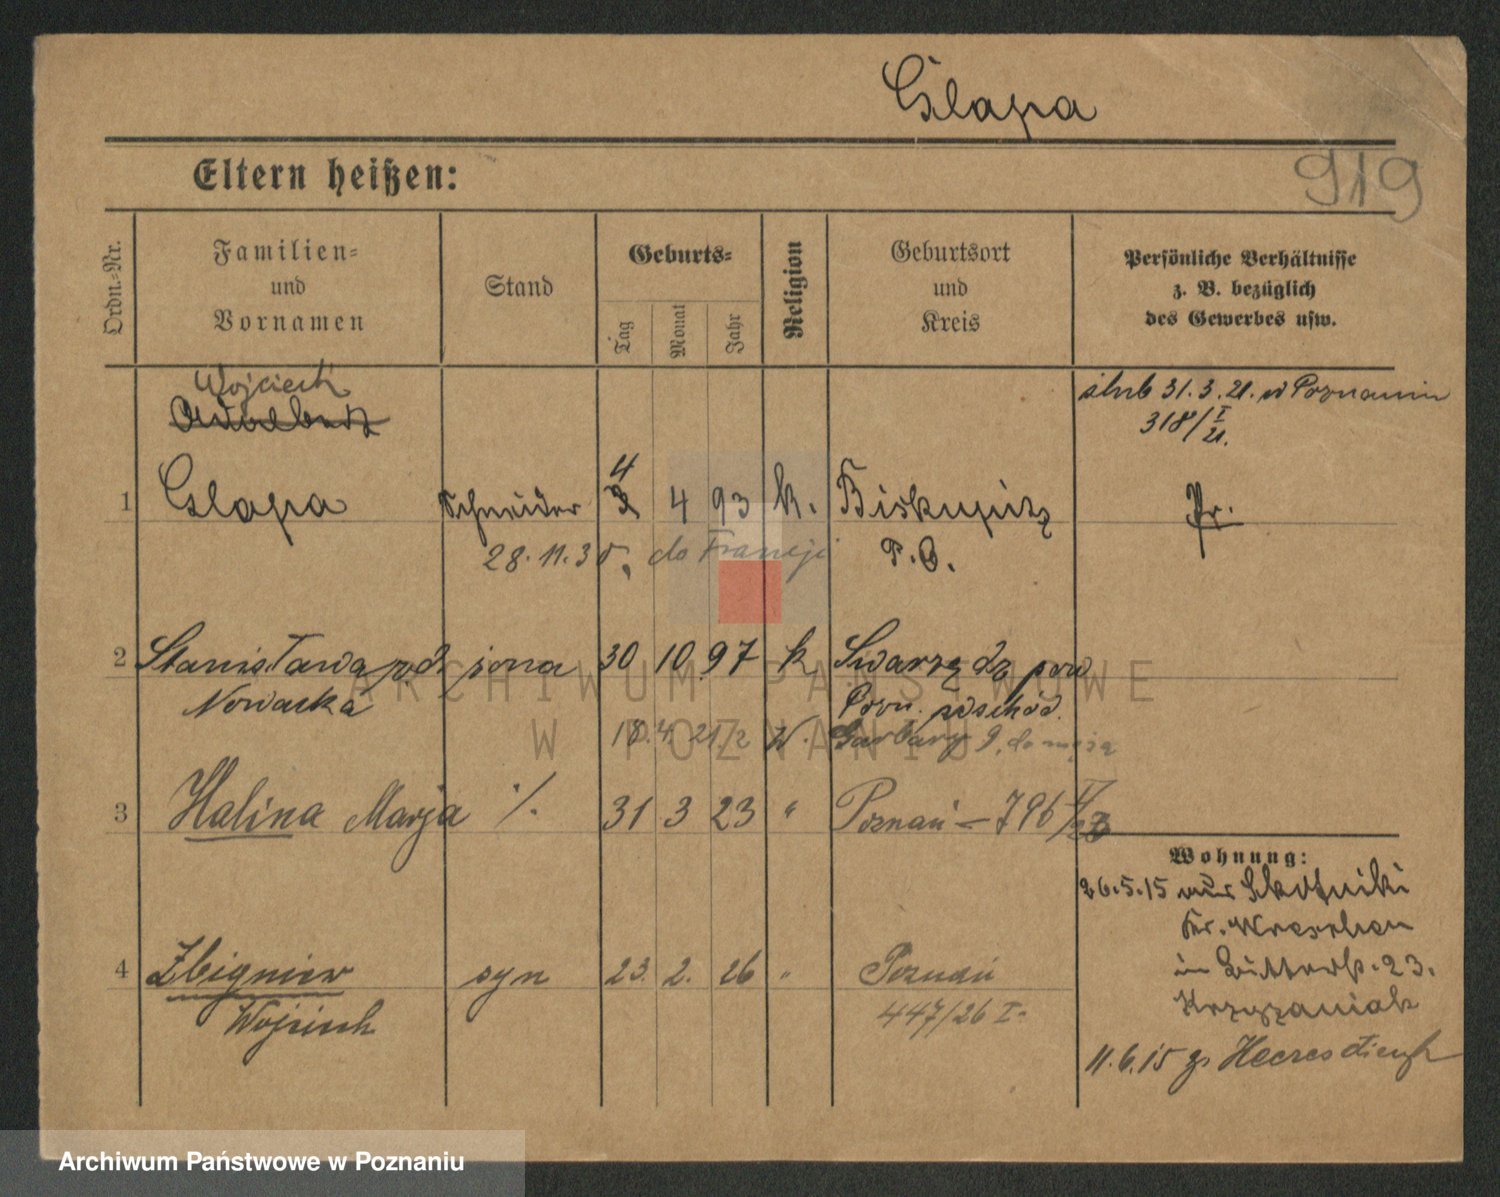 Glapa
919
Eltern heißen:
Ordn.-Nr.
Familien-
und
Vornamen
Stand
Geburts-
Tag
Monat
Jahr
Religion
Geburtsort
und
Kreis
Persönliche Verhältnisse
z. B. bezüglich
des Gewerbes usw.
Wojciech
Adalbert
ślub 31.3.21. w Poznaniu
318/I 21.
1 Glapa Schneider 4 4 93 k. Biskupitz Pr.
28.11.30, do Francji P.O.
2 Stanisława z d. żona 30 10 97 k Swarzędz pow
Nowacka Pozn. wschód.
18.4.21/2 W. Garbary 9, do męża
3 Halina Marja ·/. 31 3 23 " Poznań – 796
Wohnung:
26.5.15 aus Skotniki
Kr. Wreschen
in Bütterstr. 23.
Krzyżaniak
4 Zbigniew syn 23. 2. 26 " Poznań
Wojciech 447/26 I.
11.6.15 z. Heeresdienst
ARCHIWUM PAŃSTWOWE
W POZNANIU
Archiwum Państwowe w Poznaniu